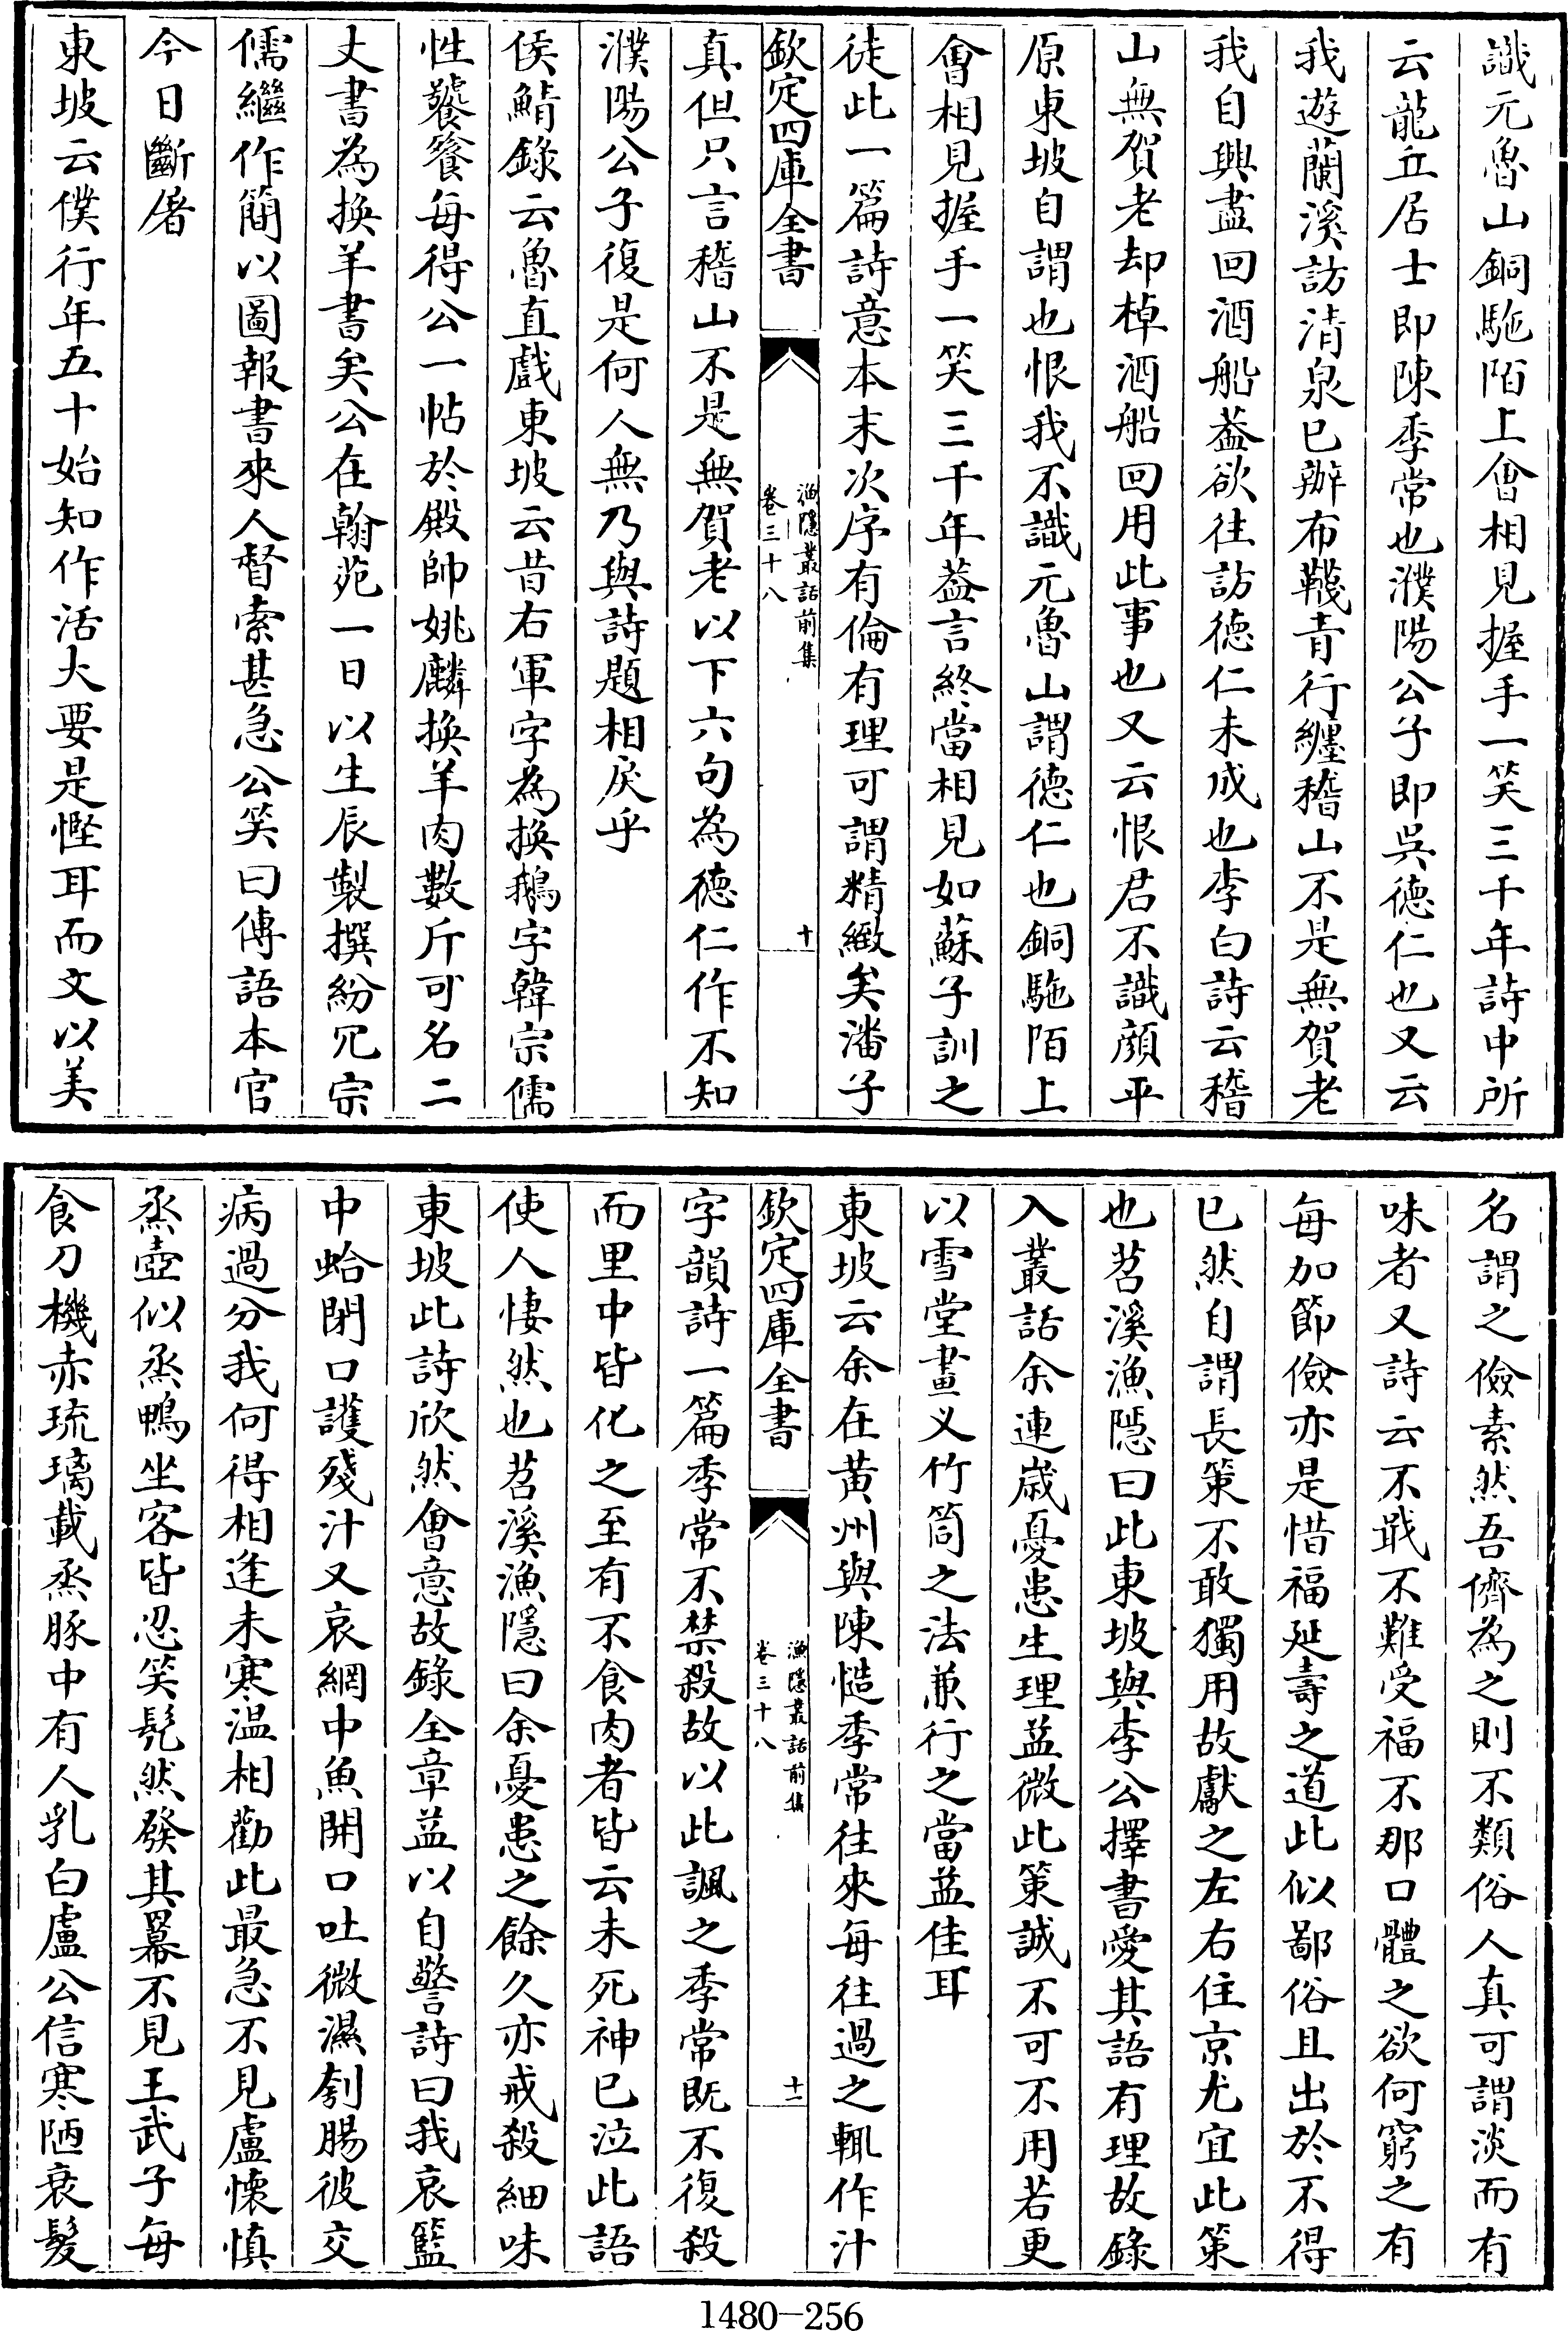 識元魯山銅駞陌上㑹相見握手一笑三千年詩中所
云龍丘居士即陳季常也濮陽公子即吳徳仁也又云
我遊蘭溪訪清泉已辦布韈青行纏稽山不是無賀老
我自興盡回酒船葢欲往訪徳仁未成也李白詩云稽
山無賀老却棹酒船回用此事也又云恨君不識顔平
原東坡自謂也恨我不識元魯山謂徳仁也銅駞陌上
㑹相見握手一笑三千年葢言終當相見如蘇子訓之
徒此一篇詩意本末次序有倫有理可謂精緻矣潘子
欽定四庫全書
漁隱叢話前集
卷三十八
十
真但只言稽山不是無賀老以下六句為徳仁作不知
濮陽公子復是何人無乃與詩題相戾乎
侯鯖錄云魯直戲東坡云昔右軍字為換鵝字韓宗儒
性饕餮每得公一帖於殿帥姚麟換羊肉數斤可名二
丈書為換羊書矣公在翰苑一日以生辰製撰紛冗宗
儒繼作簡以圖報書來人督索甚急公笑曰傳語本官
今日斷屠
東坡云僕行年五十始知作活大要是慳耳而文以美
名謂之儉素然吾儕為之則不類俗人真可謂淡而有
味者又詩云不戢不難受福不那口體之欲何窮之有
每加節儉亦是惜福延壽之道此似鄙俗且出於不得
已然自謂長策不敢獨用故獻之左右住京尤宜此策
也苕溪漁隱曰此東坡與李公擇書愛其語有理故錄
入叢話余連嵗憂患生理益微此策誠不可不用若更
以雪堂畫义竹筒之法兼行之當益佳耳
東坡云余在黄州與陳慥季常往來每往過之輒作汁
欽定四庫全書
漁隱叢話前集
卷三十八
十一
字韻詩一篇季常不禁殺故以此諷之季常既不復殺
而里中皆化之至有不食肉者皆云未死神已泣此語
使人悽然也苕溪漁隱曰余憂患之餘久亦戒殺細味
東坡此詩欣然㑹意故錄全章益以自警詩曰我哀籃
中蛤閉口護殘汁又哀網中魚開口吐微濕刳腸彼交
病過分我何得相逢未寒温相勸此最急不見盧懷慎
烝壺似烝鴨坐客皆忍笑髠然發其羃不見王武子每
食刀機赤琉璃載烝豚中有人乳白盧公信寒陋衰髪
1480-256